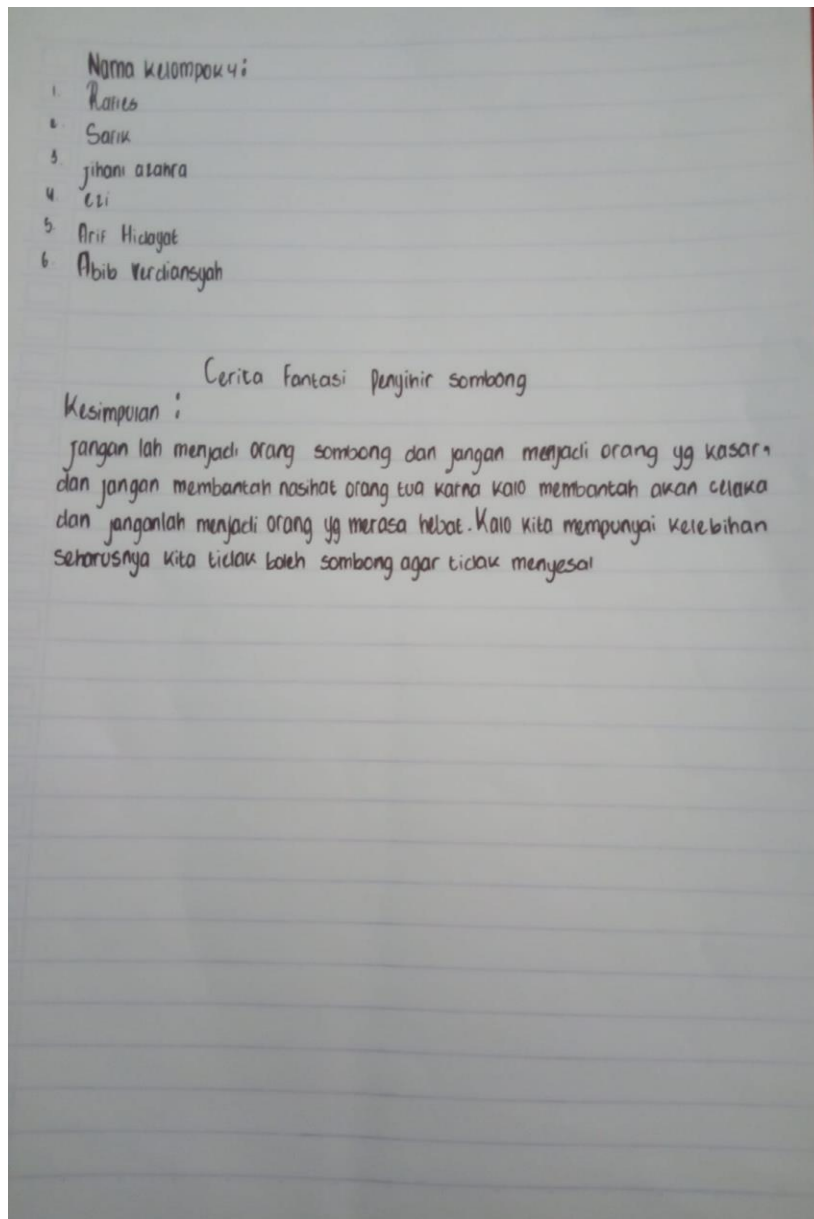 Nama kelompok 4:
1. Rafies
2. Sarik
3. jihani azahra
4. ezi
5. Arif Hidayat
6. Abib Verdiansyah
Cerita Fantasi Penyihir sombong
Kesimpulan :
Jangan lah menjadi orang sombong dan jangan menjadi orang yg kasar,
dan jangan membantah nasihat orang tua karna kalo membantah akan celaka
dan janganlah menjadi orang yg merasa hebat. Kalo kita mempunyai kelebihan
seharusnya kita tidak boleh sombong agar tidak menyesal